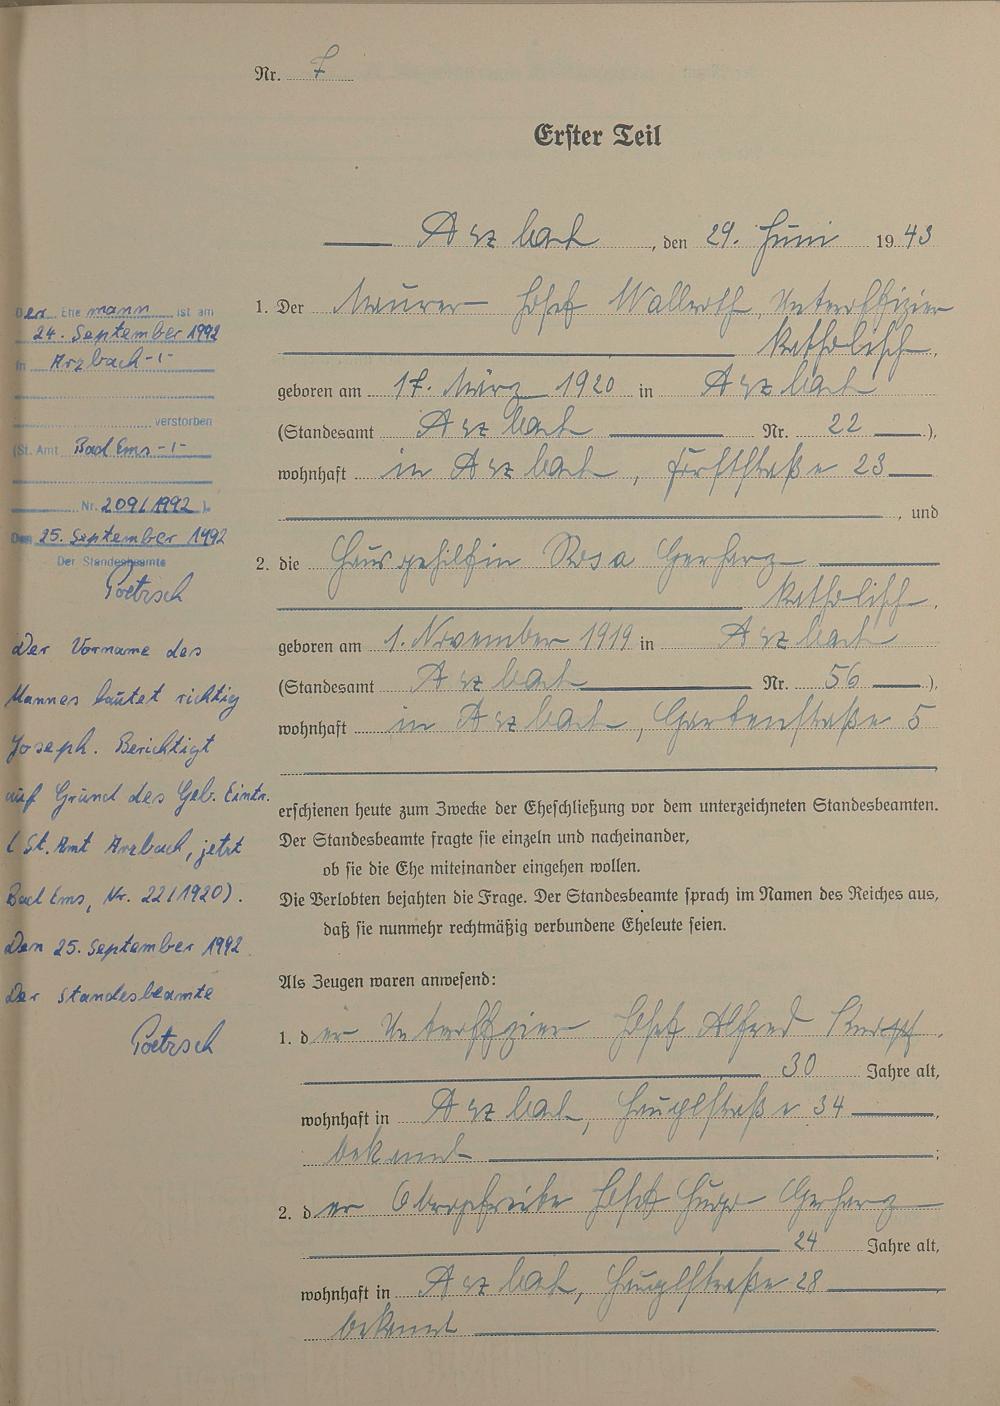 Nr. 7
Erster Teil
Arzbach, den 29. Juni 1943
1. Der Maurer Josef Wallroth, Unteroffizier
katholisch,
geboren am 17. März 1920 in Arzbach
(Standesamt Arzbach Nr. 22),
wohnhaft in Arzbach, Forststraße 23
, und
2. die Hausgehilfin Rosa Gerharz
katholisch,
geboren am 1. November 1919 in Arzbach
(Standesamt Arzbach Nr. 56),
wohnhaft in Arzbach, Gartenstraße 5
erschienen heute zum Zwecke der Eheschließung vor dem unterzeichneten Standesbeamten.
Der Standesbeamte fragte sie einzeln und nacheinander,
ob sie die Ehe miteinander eingehen wollen.
Die Verlobten bejahten die Frage. Der Standesbeamte sprach im Namen des Reiches aus,
daß sie nunmehr rechtmäßig verbundene Eheleute seien.
Als Zeugen waren anwesend:
1. der Unteroffizier Josef Alfred
30 Jahre alt,
wohnhaft in Arzbach, Hauptstraße 34,
bekannt;
2. der Obergefreite Josef Hugo Gerharz
24 Jahre alt,
wohnhaft in Arzbach, Hauptstraße 28
bekannt.
Der Ehemann ist am
24. September 1992
in Arzbach -/-
verstorben
(St. Amt Bad Ems -/-
Nr. 209/1992).
Den 25. September 1992
Der Standesbeamte
Poetzsch
Der Vorname des
Mannes lautet richtig
Joseph. Berichtigt
auf Grund des Geb. Eintr.
(St. Amt Arzbach, jetzt
Bad Ems, Nr. 22/1920).
Den 25. September 1992
Der Standesbeamte
Poetzsch